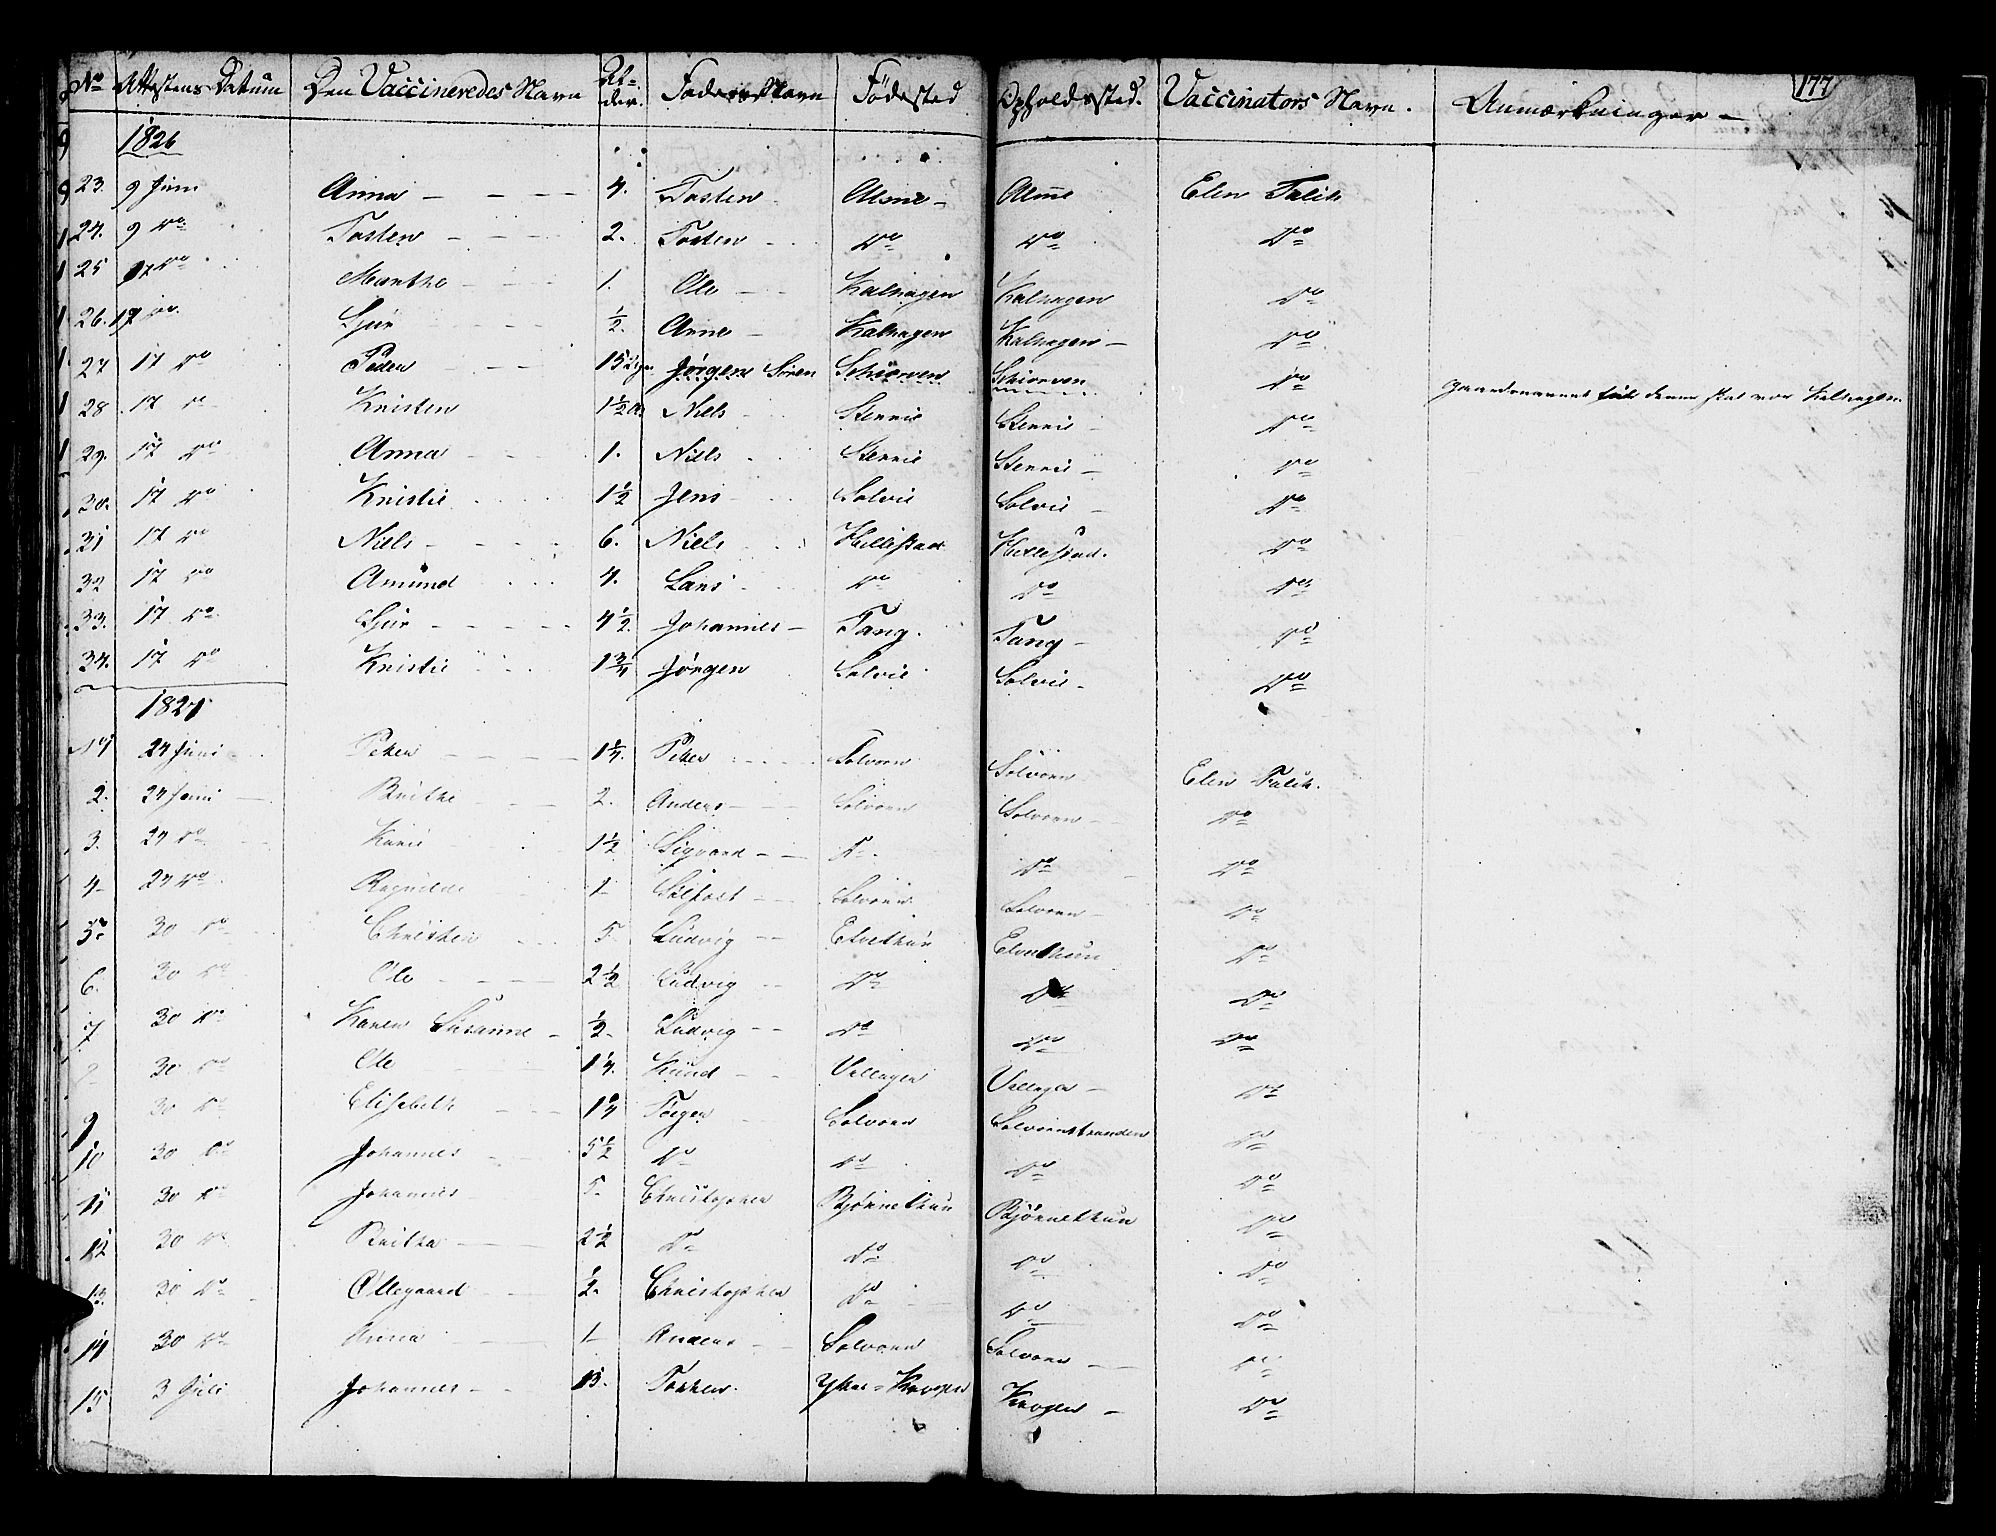 177
No Attestens Datum Den Vaccineredes Navn Alder. Faderens Navn Fødested Opholdssted. Vaccinators Navn. Anmærkninger -
1826
23. 9 Juni Anna - 4. Tosten Alme - Alme Elen Talik
24. 9 do Tosten - 2. Tosten - do do do
25 17 do Marthe 1. Ole Kalhagen Kalhagen do
26. 17 do Sjur ½. Arne - Kalhagen Kalhagen - do
27 17 do Peder 15 Jørgen Sören Schiørven Schiorven do Gaardmannes denne skal vær Kalhagen
28 17 do Kristen 1½ Niels Stennie Stennie do
29. 17 do Anna 1. Niels Stennie Stennie - do
30. 17 do Kristie 1½ Jens Solvie Solvie - do
31 17 do Niels - 6. Niels Hillestad Hillestad. do
32 17 do Amund 4. Lars do do do
33. 17 do Sjur - 4½ Johannes - Tang. Tang - do
34. 17 do Kristie 1¾ Jörgen Solvie Solvie - do
1827
No 1 24 Juni Peter 1¼. Peter Solvorn Solvorn Elen Talik.
2. 24 Juni Brithe 2. Anders - Solvorn Solvorn do
3. 24 do Karie 1½ Sigvard - do do do
4 24 do Ragnilde 1 Solvorn Solvorn - do
5. 30 do Christen 5 Ludvig - Elvethun Elvethun do
6. 30 do Ole 2½ Ludvig - do do do
7 30 do Karen Susanne - ½ Ludvig - do do do
8 30 do Ole 1¼. Knud - Vellagen Vellagen - do
9 30 do Elisabeth 1¼ Torger Solvorn Solvornstranden do
10 30 do Johannes 5½ do do do do
11 30 do Johannes 5. Christopher Bjørnethun Bjørnethun do
12 30 do Brithe - 2½ do do do do
13. 30 do Ollegaard ½. Christopher do do do
14 30 do Anna 1 Anders Solvorn Solvorn - do
15 3 Juli Johannes - 13. Tosten. Ytre = Krogen Krogen - do